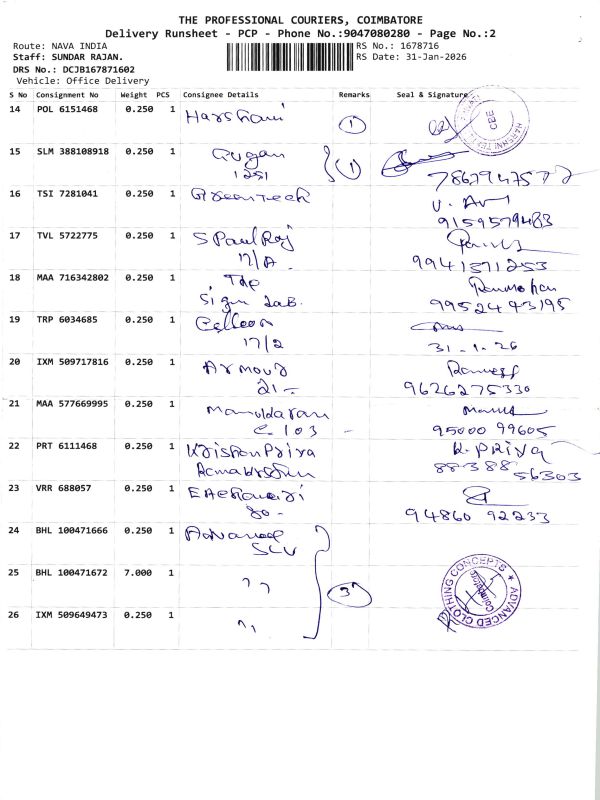 THE PROFESSIONAL COURIERS, COIMBATORE
Delivery Runsheet - PCP - Phone No.:9047080280 - Page No.:2
Route: NAVA INDIA
RS No.: 1678716
Staff: SUNDAR RAJAN.
RS Date: 31-Jan-2026
DRS No.: DCJB167871602
Vehicle: Office Delivery
S No Consignment No Weight PCS Consignee Details Remarks Seal & Signature
14 POL 6151468 0.250 1 Harshani 1
15 SLM 388108918 0.250 1 Gugan 1
1251
16 TSI 7281041 0.250 1 Greentech
9159579483
17 TVL 5722775 0.250 1 S Paul Raj
17/A.
9941571253
18 MAA 716342802 0.250 1 The Ram Mohan
Sign Lab. 9952443195
19 TRP 6034685 0.250 1
17/2 31.1.26
20 IXM 509717816 0.250 1 Armour Ramesh
21 - 9626275330
21 MAA 577669995 0.250 1
C 103 - 95000 99605
22 PRT 6111468 0.250 1 Krishan Priya K. PRIYA
88388 56303
23 VRR 688057 0.250 1
80 - 94860 92233
24 BHL 100471666 0.250 1 Advanced
25 BHL 100471672 7.000 1 " 3
26 IXM 509649473 0.250 1 "
ADVANCED CLOTHING CONCEPTS
Coimbatore